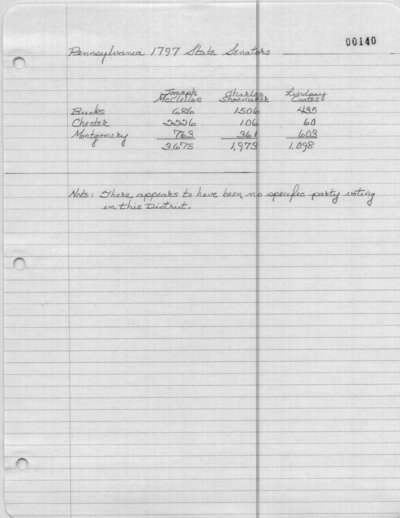 00140
Pennsylvania 1797 State Senators
Joseph McClellan Charles Shoemaker Lyndsay Coates
Bucks 686 1506 435
Chester 2226 106 60
Montgomery 763 361 603
3,675 1,973 1,098
Note: There appears to have been no specific party voting
in this District.